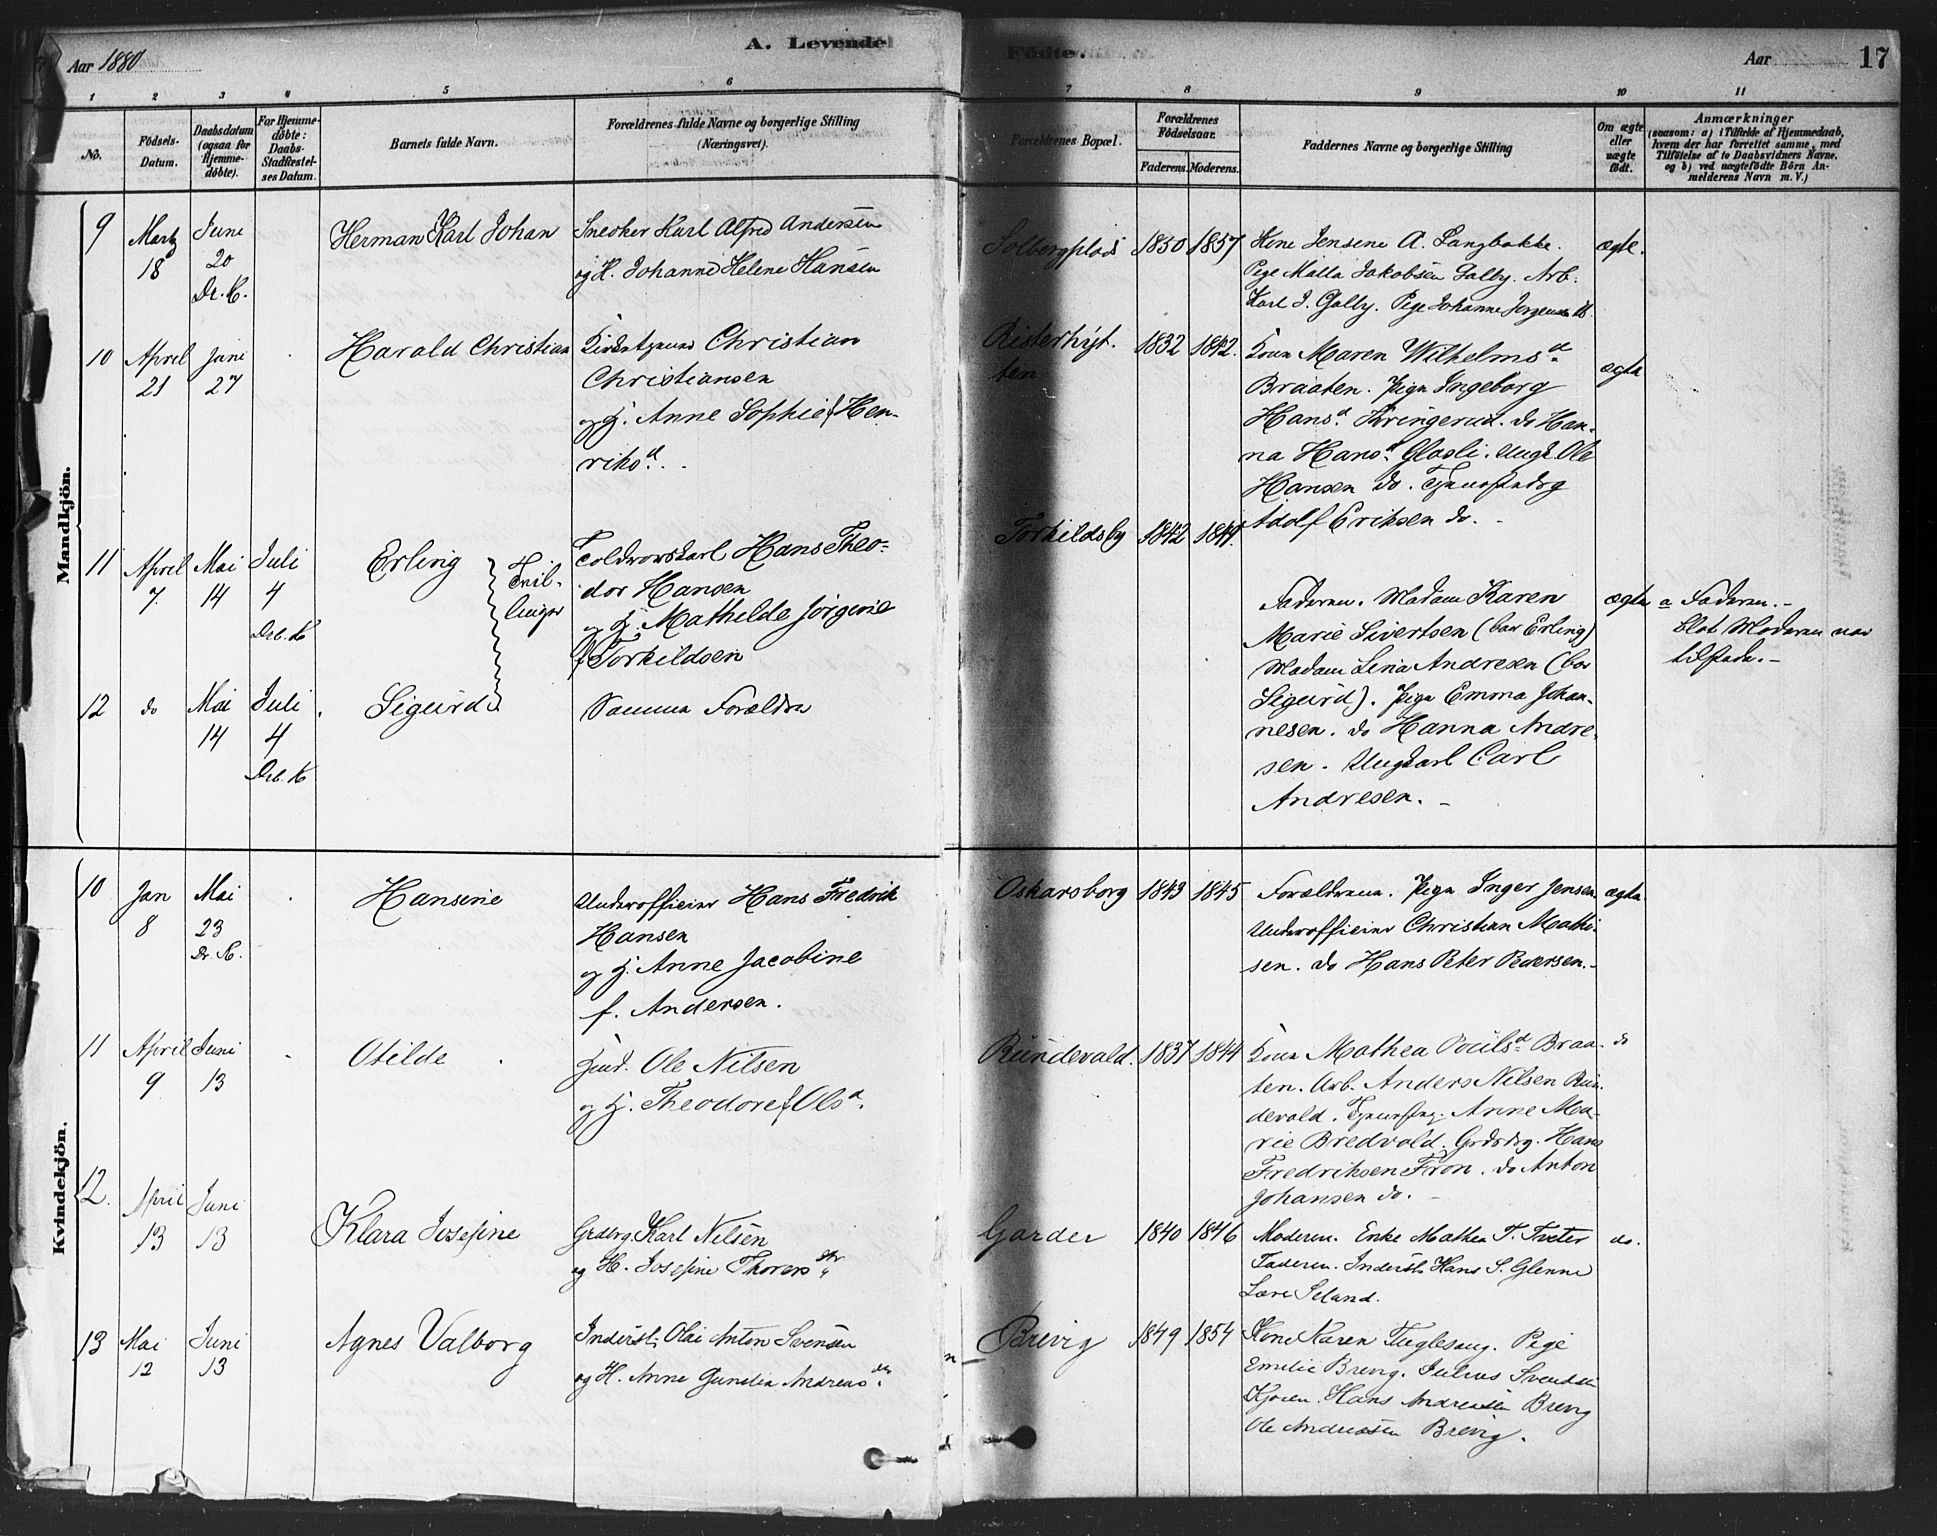 A. Levende Fødte.
Aar 1880
Aar
17
1 2 3 4 5 6 7 8 9 10 11
No.
Födsels-Datum.
Daabsdatum (ogsaa for Hjemmedöbte).
For Hjemmedöbte: Daabs-Stadfæstelses Datum.
Barnets fulde Navn.
Forældrenes fulde Navne og borgerlige Stilling (Næringsvei).
Forældrenes Bopæl.
Forældrenes Födselsaar.
Faderens. Moderens.
Faddernes Navne og borgerlige Stilling
Om ægte eller uægte födt.
Anmærkninger
(saasom: a) i Tilfælde af Hjemmedaab, hvem der har forrettet samme, med Tilföielse af to Daabsvidners Navne, og b) ved uægtefödte Börn Anmelderens Navn m. V.)
Mandkjön.
9
Marts 18
Juni 20
Dr. K.
Herman Karl Johan
Snedker Karl Alfred Andersen
og H. Johanne Helene Hansen
Solbergplads
1850 1857
Kone Jensene A. Langbakke.
Pige Malla Jakobsen Galby. Arb.
Karl J. Galby. Pige Johanne Jørgensen
ægte.
10
April 21
Juni 27
Harald Christian
Christian
Christiansen
og H. Anne Sophie f Hen-
riksd.
Risterhyt-
ten
1832 1842.
Kone Maren Wilhelmsd.
Braaten. Pige Ingeborg
Hansd. Kringerud. do Han-
na Hansd. Glosli. Ungk. Ole
Hansen do.
Adolf Eriksen do.
ægte
11
April 7.
Mai 14
Juli 4
Drb. K
Erling
Tvil-
linger
Toldrorskarl Hans Theo-
dor Hansen
og H. Mathilde Jørgine
f Torkildsen
Torkildsby
1842 1849.
Faderen. Madam Karen
Marie Sivertsen (bar Erling)
Madam Lina Andresen (bar
Sigurd). Pige Emma Johan-
nesen. do Hanna Andre-
sen. Ungkarl Carl
Andresen.
ægte
a Faderen.
blot Moderen var
tilstede.
12
do
Mai 14
Juli 4
Drb. K
Sigurd
Samme Forældre
Kvindekjön.
10
Jan 8
Mai 23
Dr. K.
Hansine
Underofficier Hans Fredrik
Hansen
og H. Anne Jacobine
f. Andersen.
Oskarsborg
1843 1845
Forældrene. Pige Inger Jensen
Underofficier Christian Mathi-
sen. do Hans Peter Pedersen.
ægte
11
April 9
Juni 13
Otilde
Ole Nilsen
og H. Theodore f Olsd.
Rundevald.
1837 1844
Kone Mathea Poulsd. Braa-
ten. Arb. Anders Nilsen Run-
devald. Anne Ma-
rie Bredvold. Grdsbrg. Hans
Fredriksen Fron. do Anton
Johansen do.
do
12.
April 13
Juni 13
Klara Josefine
Grdbrg. Karl Nilsen
og H. Josefine Thoresdtr
Garder
1840 1846
Moderen. Enke Mathea T. Tveter
Faderen. Inderst Hans S. Glenne
Lære Seland.
do.
13
Mai 12
Juni 13
Agnes Valborg
Inderst. Olai Anton Svensen
og H. Anne Gunelia Andreasd.
Brevig
1849 1854
Kone Karen Fuglesang. Pige
Emilie Brevig. Julius Svendsen
Kjøien. Hans Andreasen Brevig
Ole Andreasen Brevig.